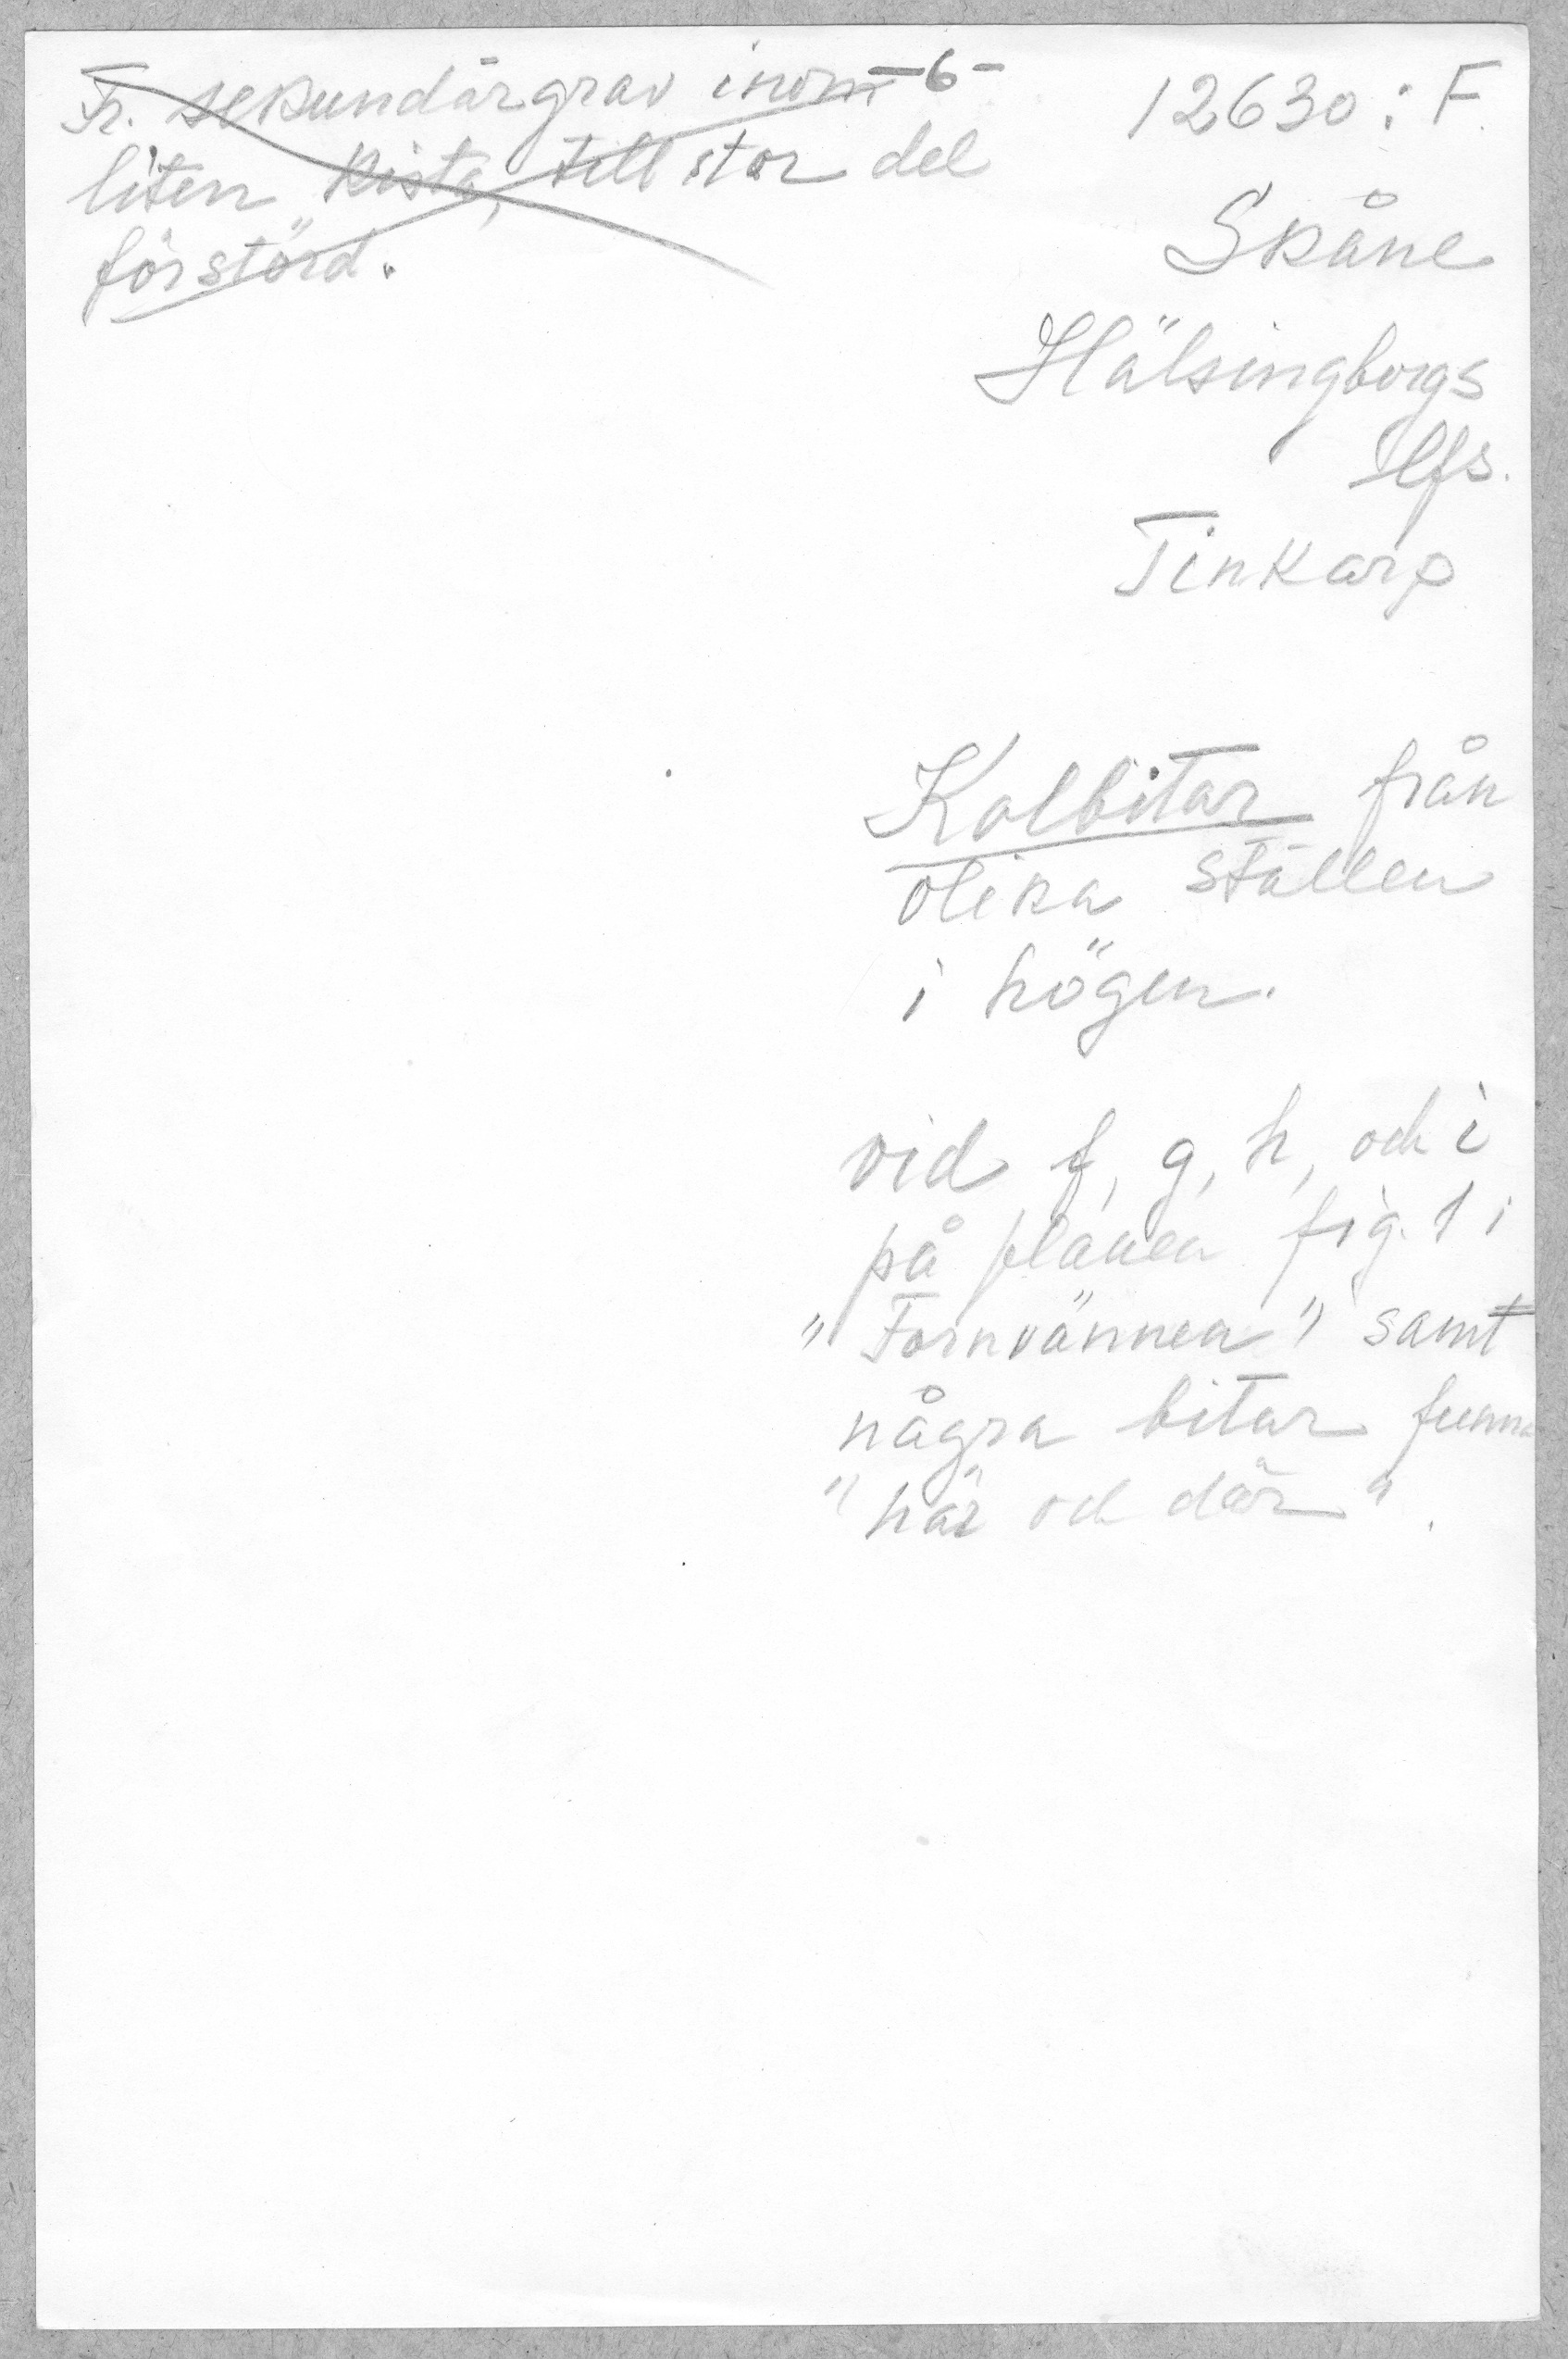 Fr. sekundärgrav inom
liten kista, till stor del
förstörd.
-6-
12630:F.
Skåne
Hälsingborgs
lfs.
Tinkarp
Kolbitar från
olika ställen
i högen.
vid f, g, h, och i
på planen fig. 1 i
"Fornvännen" samt
några bitar funna
"här och där".